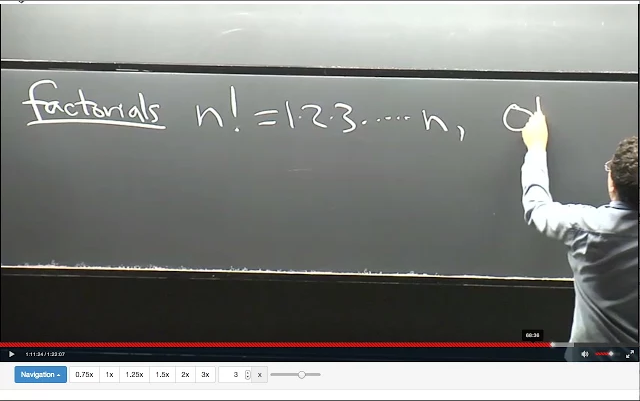 factorials n! = 1·2·3·····n, 0!
68:36
1:11:24 / 1:22:07
Navigation 0.75x 1x 1.25x 1.5x 2x 3x 3 x